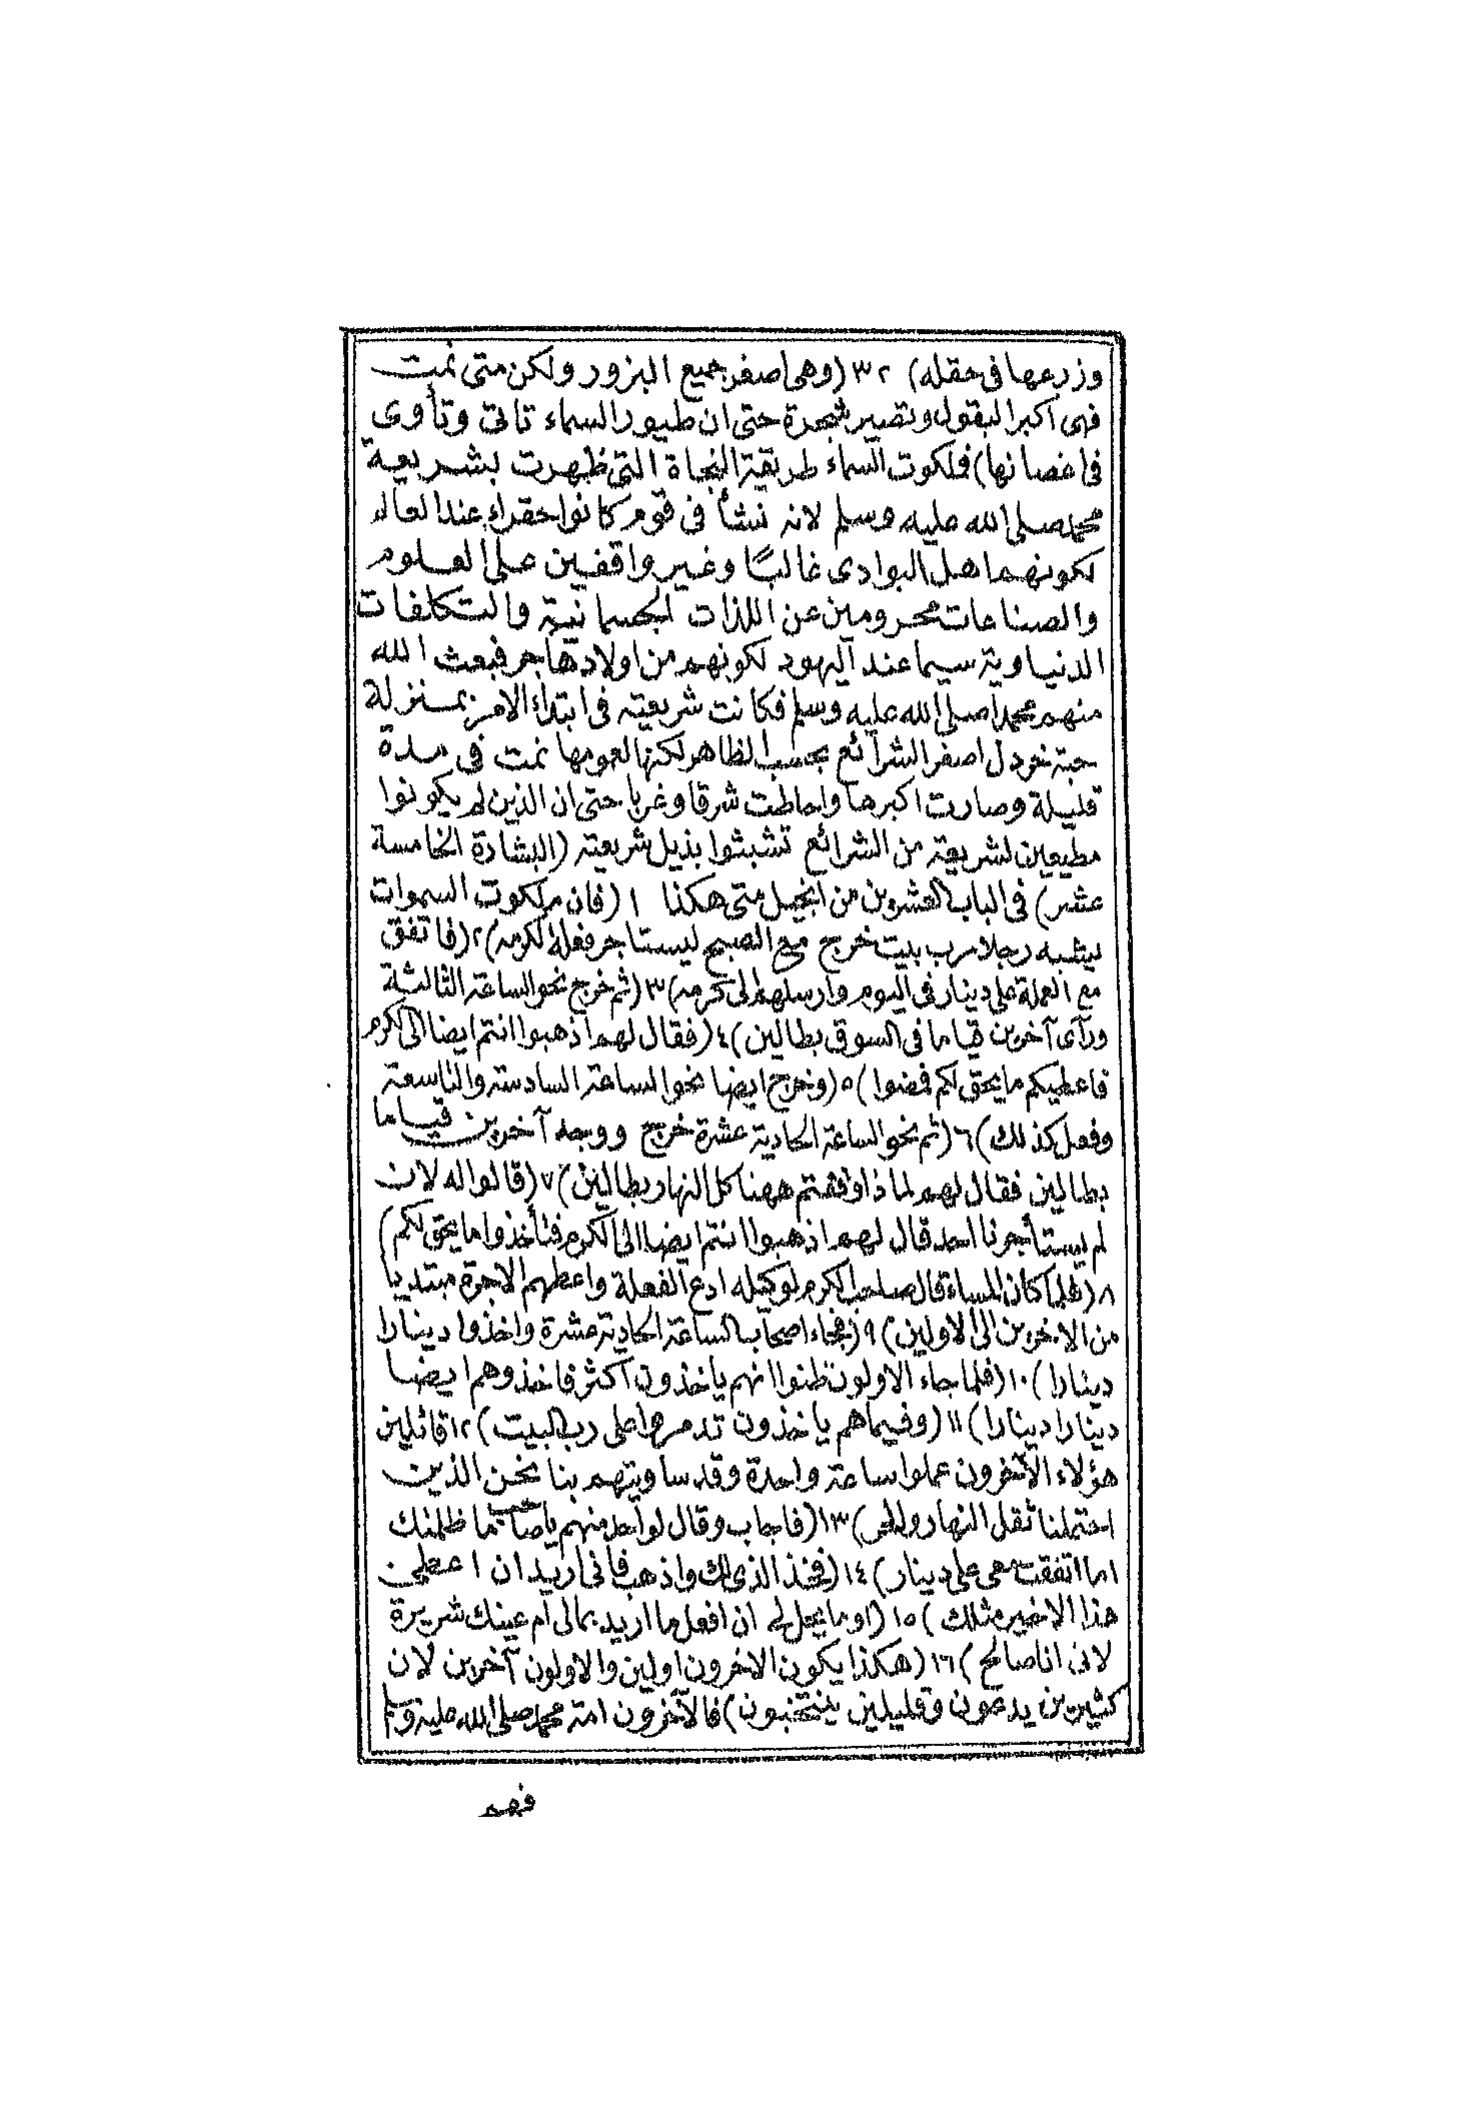 وزرعها فى حقله) ٣٢ (وهى اصغر جميع البزور ولكن متى نمت
فهى اكبر البقول وتصير شجرة حتى ان طيور السماء تاتى وتأوى
فى اغصانها) فملكوت السماء طريقة النجاة التى ظهرت بشريعة
محمد صلى الله عليه وسلم لانه نشأ فى قوم كانوا حقراء عند العالم
لكونهم اهل البوادى غالبًا وغير واقفين على العلوم
والصناعات محرومين عن اللذات الجسمانية والتكلفات
الدنياوية سيما عند اليهود لكونهم من اولاد هاجر فبعث الله
منهم محمدا صلى الله عليه وسلم فكانت شريعته فى ابتداء الامر بمنزلة
حبة خردل اصغر الشرائع بحسب الظاهر لكنها لعمومها نمت فى مدة
قليلة وصارت اكبرها واحاطت شرقا وغربا حتى ان الذين لم يكونوا
مطيعين لشريعة من الشرائع تشبثوا بذيل شريعته (البشارة الخامسة
عشر) فى الباب العشرين من انجيل متى هكذا ١ (فان ملكوت السموات
يشبه رجلا رب بيت خرج مع الصبح ليستاجر فعلة لكرمه) ٢ (فاتفق
مع العملة على دينار فى اليوم وارسلهم الى كرمه) ٣ (ثم خرج نحو الساعة الثالثة
ورآى آخرين قياما فى السوق بطالين) ٤ (فقال لهم اذهبوا انتم ايضا الى الكرم
فاعطيكم ما يحق لكم فمضوا) ٥ (وخرج ايضا نحو الساعة السادسة والتاسعة
وفعل كذلك) ٦ (ثم نحو الساعة الحادية عشرة خرج ووجد آخرين قياما
بطالين فقال لهم لماذا وقفتم ههنا كل النهار بطالين) ٧ (قالوا له لان
لم يستأجرنا احد قال لهم اذهبوا انتم ايضا الى الكرم فتأخذوا ما يحق لكم)
٨ (فلما كان المساء قال صاحب الكرم لوكيله ادع الفعلة واعطهم الاجرة مبتديا
من الاخرين الى الاولين) ٩ (فجاء اصحاب الساعة الحادية عشرة واخذوا دينارا
دينارا) ١٠ (فلما جاء الاولون ظنوا انهم ياخذون اكثر فاخذوهم ايضا
دينارا دينارا) ١١ (وفيما هم ياخذون تدمروا على رب البيت) ١٢ قائلين
هؤلاء الآخرون عملوا ساعة واحدة وقد ساويتهم بنا نحن الذين
احتملنا ثقل النهار والحر) ١٣ (فاجاب وقال لواحد منهم ياصاحب ما ظلمتك
اما اتفقت معى على دينار) ١٤ (فخذ الذى لك واذهب فانى اريد ان اعطى
هذا الاخير مثلك) ١٥ (اوما يحل لى ان افعل ما اريد بمالى ام عينك شريرة
لانى انا صالح) ١٦ (هكذا يكون الاخرون اولين والاولون آخرين لان
كثيرين يدعون وقليلين ينتخبون) فالآخرون امة محمد صلى الله عليه وسلم
فهم